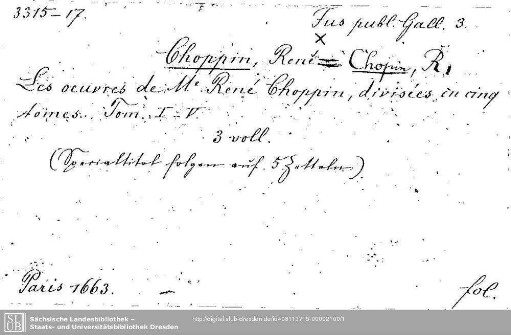 3315-17.
Jus publ. Gall. 3.
Choppin, René = Chopin, R.
Les oeuvres de Me René Choppin, divisées en cinq
tomes. Tom. I-V
3 voll.
(Specialtitel folgen auf 5 Zetteln)
Paris 1663.
fol.
Sächsische Landesbibliothek –
Staats- und Universitätsbibliothek Dresden